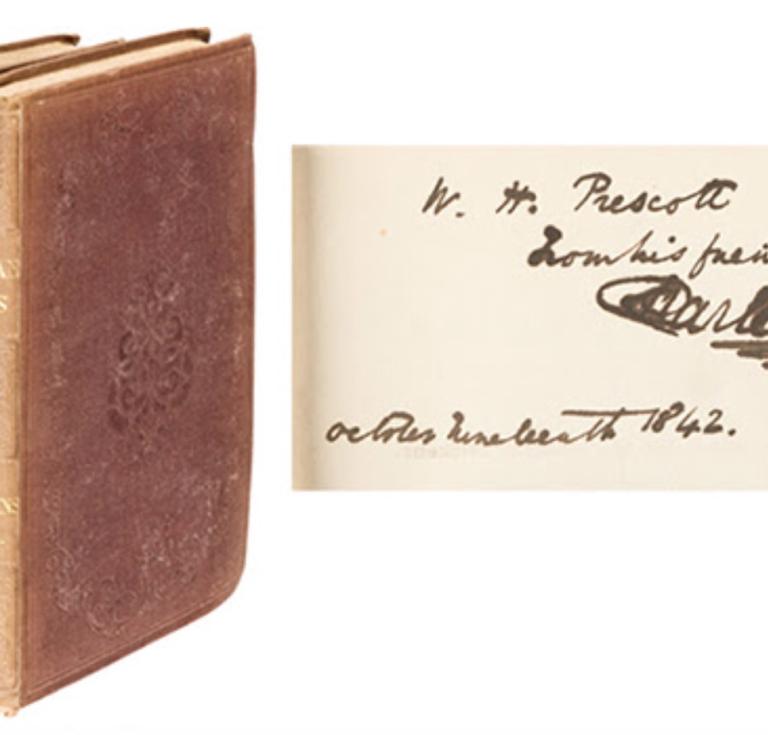 W. H. Prescott
From his frien
Charle
October Nineteenth 1842.